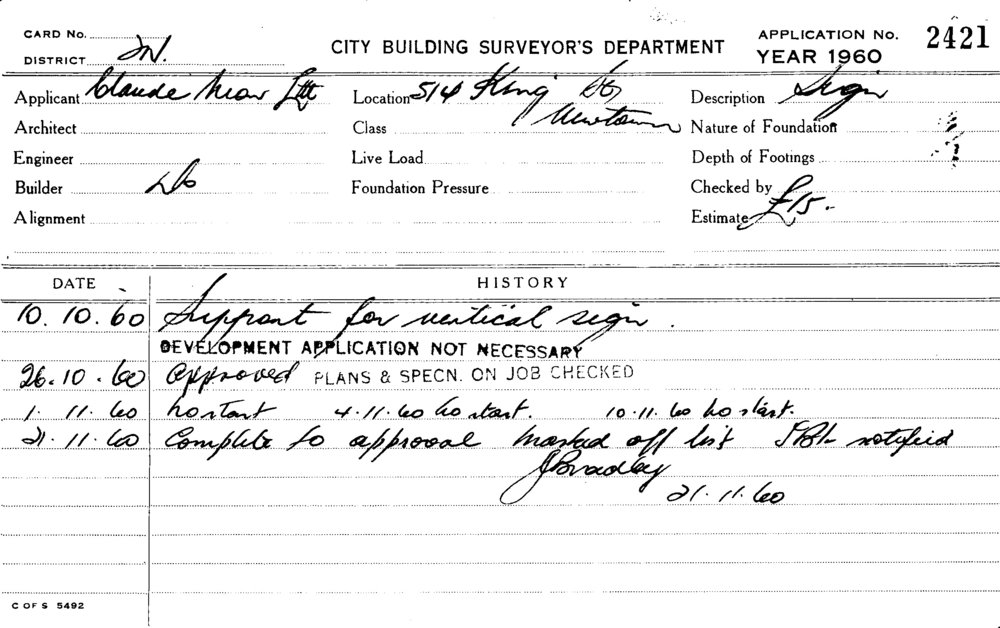 CARD No.
DISTRICT N.
CITY BUILDING SURVEYOR'S DEPARTMENT
APPLICATION No. 2421
YEAR 1960
Applicant Claude Neon Ltd
Location 514 King St
Newtown
Description Sign
Architect
Class
Nature of Foundation
Engineer
Live Load
Depth of Footings
Builder do
Foundation Pressure
Checked by
Alignment
Estimate £15.-
DATE HISTORY
10.10.60 Support for vertical sign.
DEVELOPMENT APPLICATION NOT NECESSARY
26.10.60 Approved PLANS & SPECN. ON JOB CHECKED
1.11.60 No start 4.11.60 No start. 10.11.60 No start.
21.11.60 Complete to approval Marked off list notified
JBradley
21.11.60
C OF S 5492